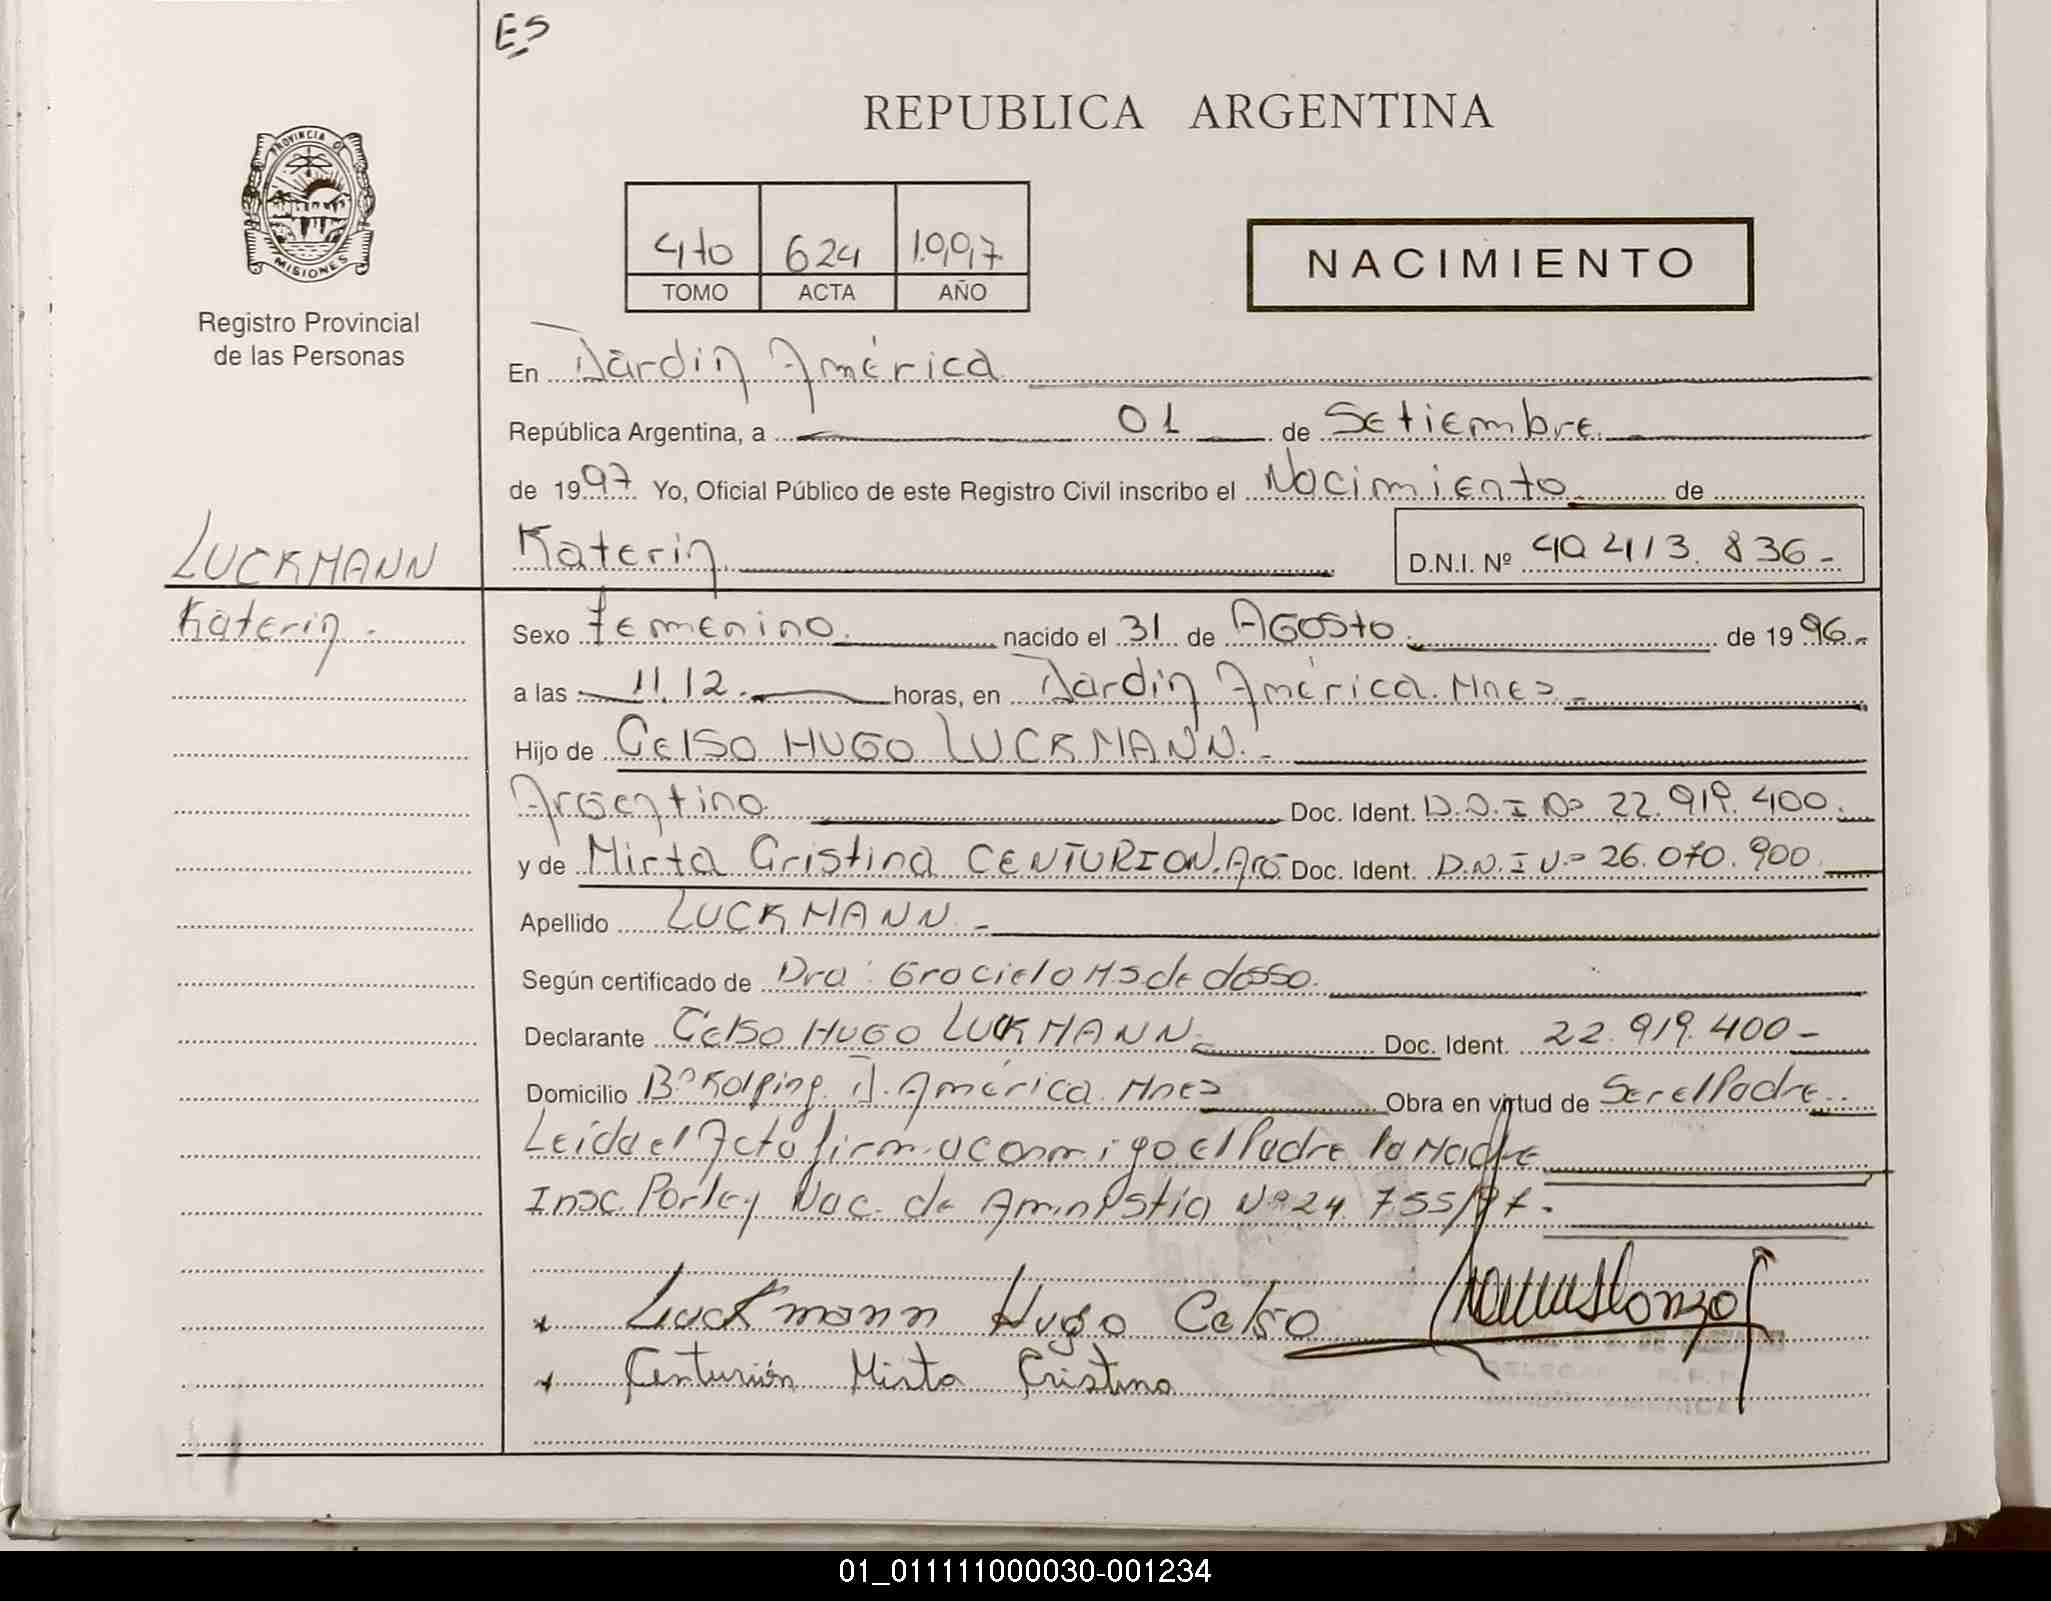 ES
REPUBLICA ARGENTINA
PROVINCIA DE
MISIONES
4to 624 1.997
TOMO ACTA AÑO
NACIMIENTO
Registro Provincial
de las Personas
En Jardin América
República Argentina, a 01 de Setiembre
de 1997. Yo, Oficial Público de este Registro Civil inscribo el Nacimiento de
LUCKMANN
Katerin
D.N.I. Nº 40.413.836-
Katerin.-
Sexo Femenino. nacido el 31 de AGosto. de 1996.-
a las 11.12. horas, en Jardin América. Mnes-
Hijo de Celso HUGO LUCKMANN.-
Argentino. Doc. Ident. D.N.I Nº 22.919.400.-
y de Mirta Cristina CENTURION. Arg Doc. Ident. D.N.I Nº 26.070.900
Apellido LUCKMANN.-
Según certificado de Dra: Graciela M.S de dosso.
Declarante Celso HUGO LUCKMANN Doc. Ident. 22.919.400-
Domicilio Bº Kolping. J. América. Mnes Obra en virtud de Ser el Padre..
Leída el Acta firma conmigo el Padre la Madre
Insc. Por ley Nac. de Amnistia Nº 24.755/97.
x Luckmann Hugo Celso
x Centurión Mirta Cristina
01_011111000030-001234